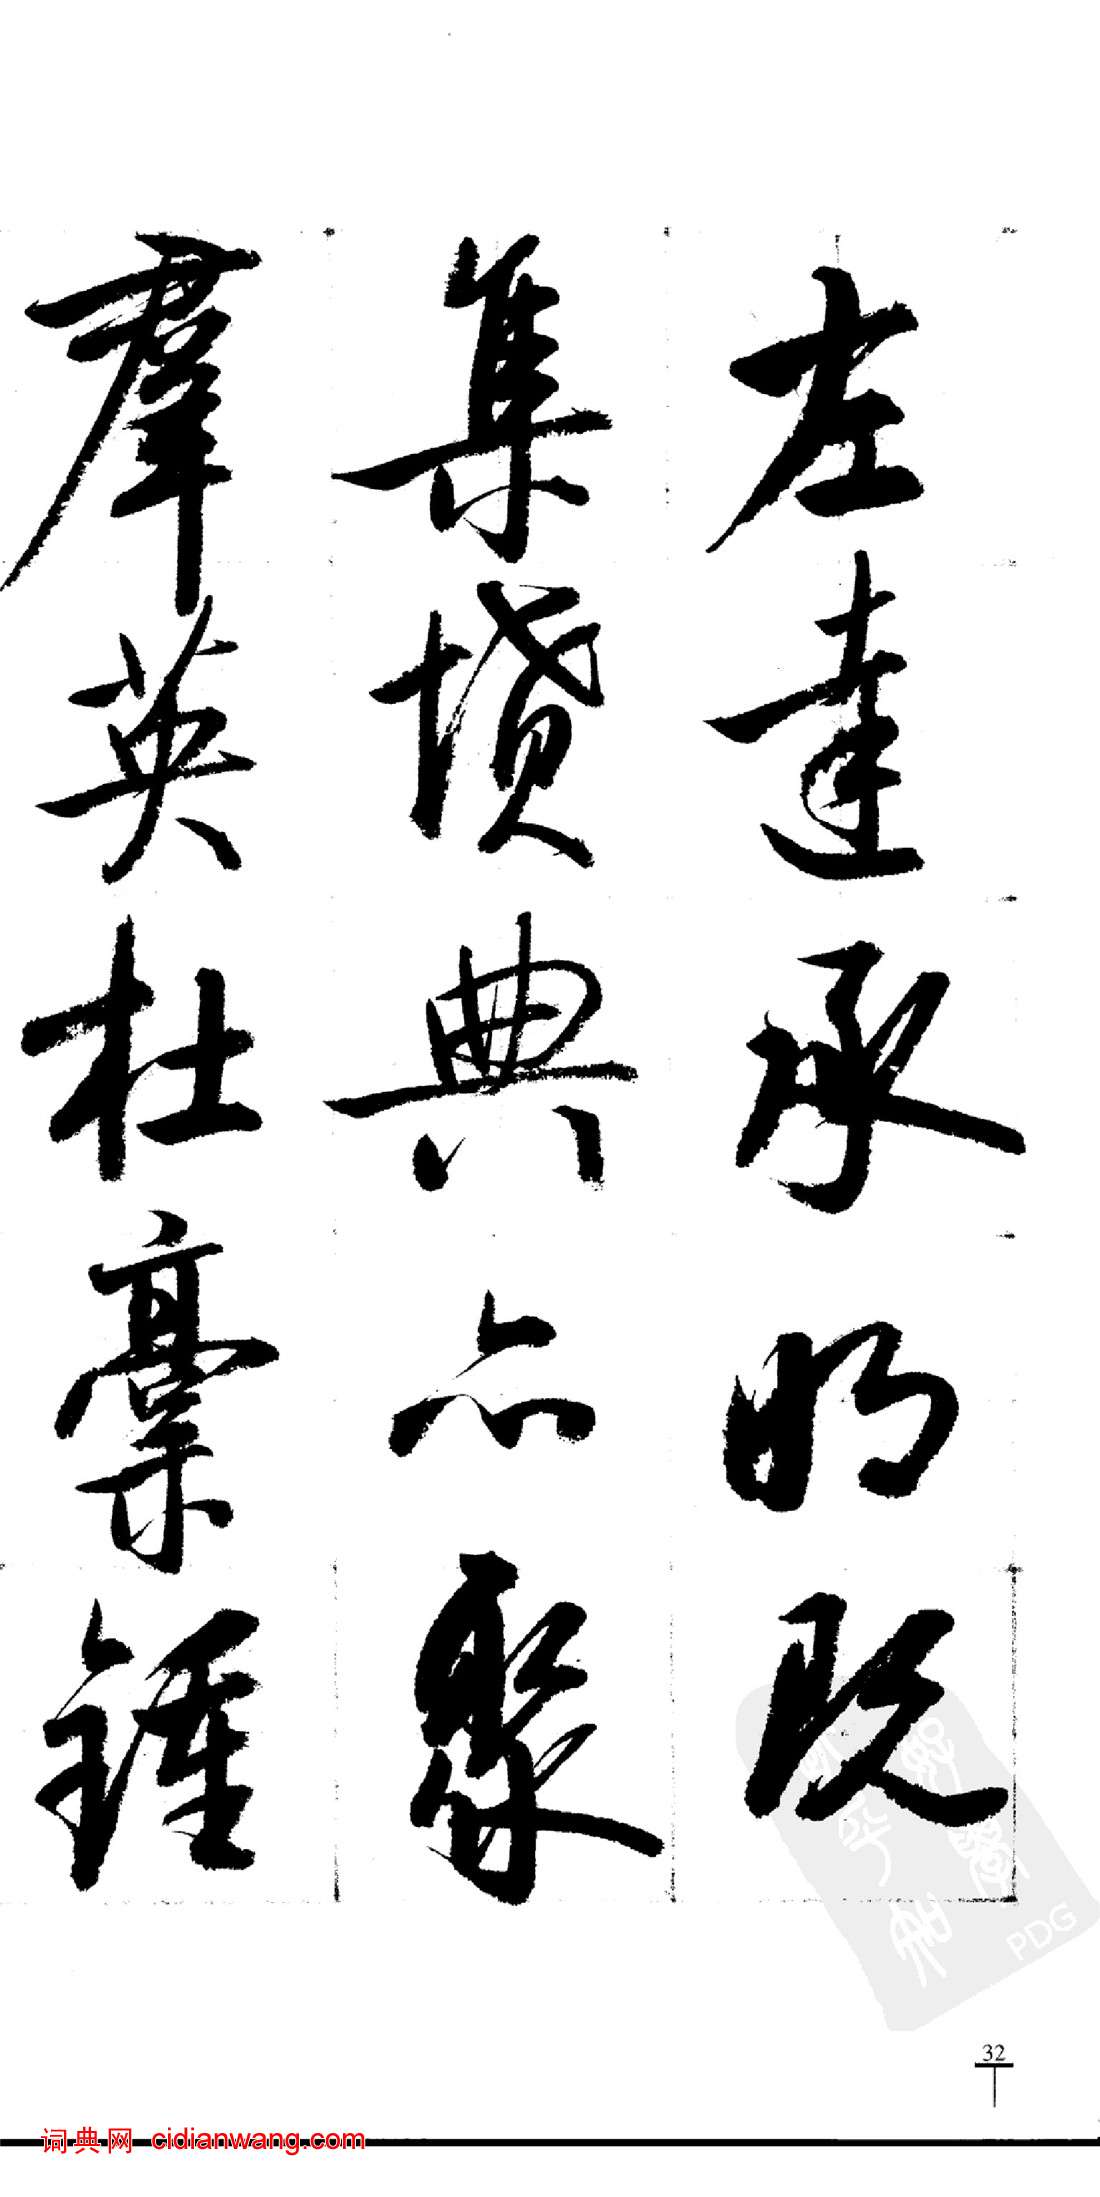 左達承明既
集墳典亦聚
羣英杜稾鍾
32
词典网 cidianwang.com
PDG